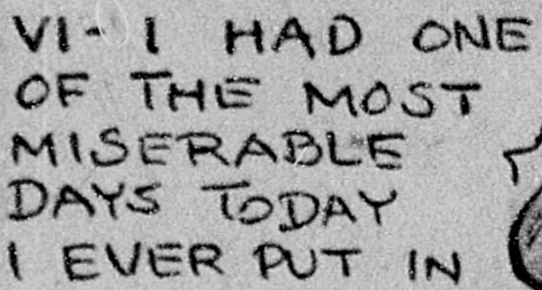 VI- I HAD ONE
OF THE MOST
MISERABLE
DAYS TODAY
I EVER PUT IN